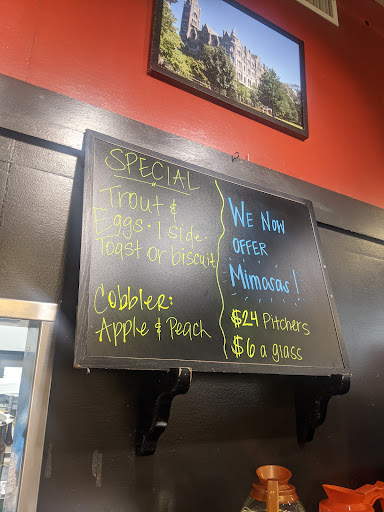 SPECIAL
Trout &
Eggs · 1 side ·
Toast or biscuit
Cobbler:
Apple & Peach
WE NOW
OFFER
Mimosas!
$24 Pitchers
$6 a glass